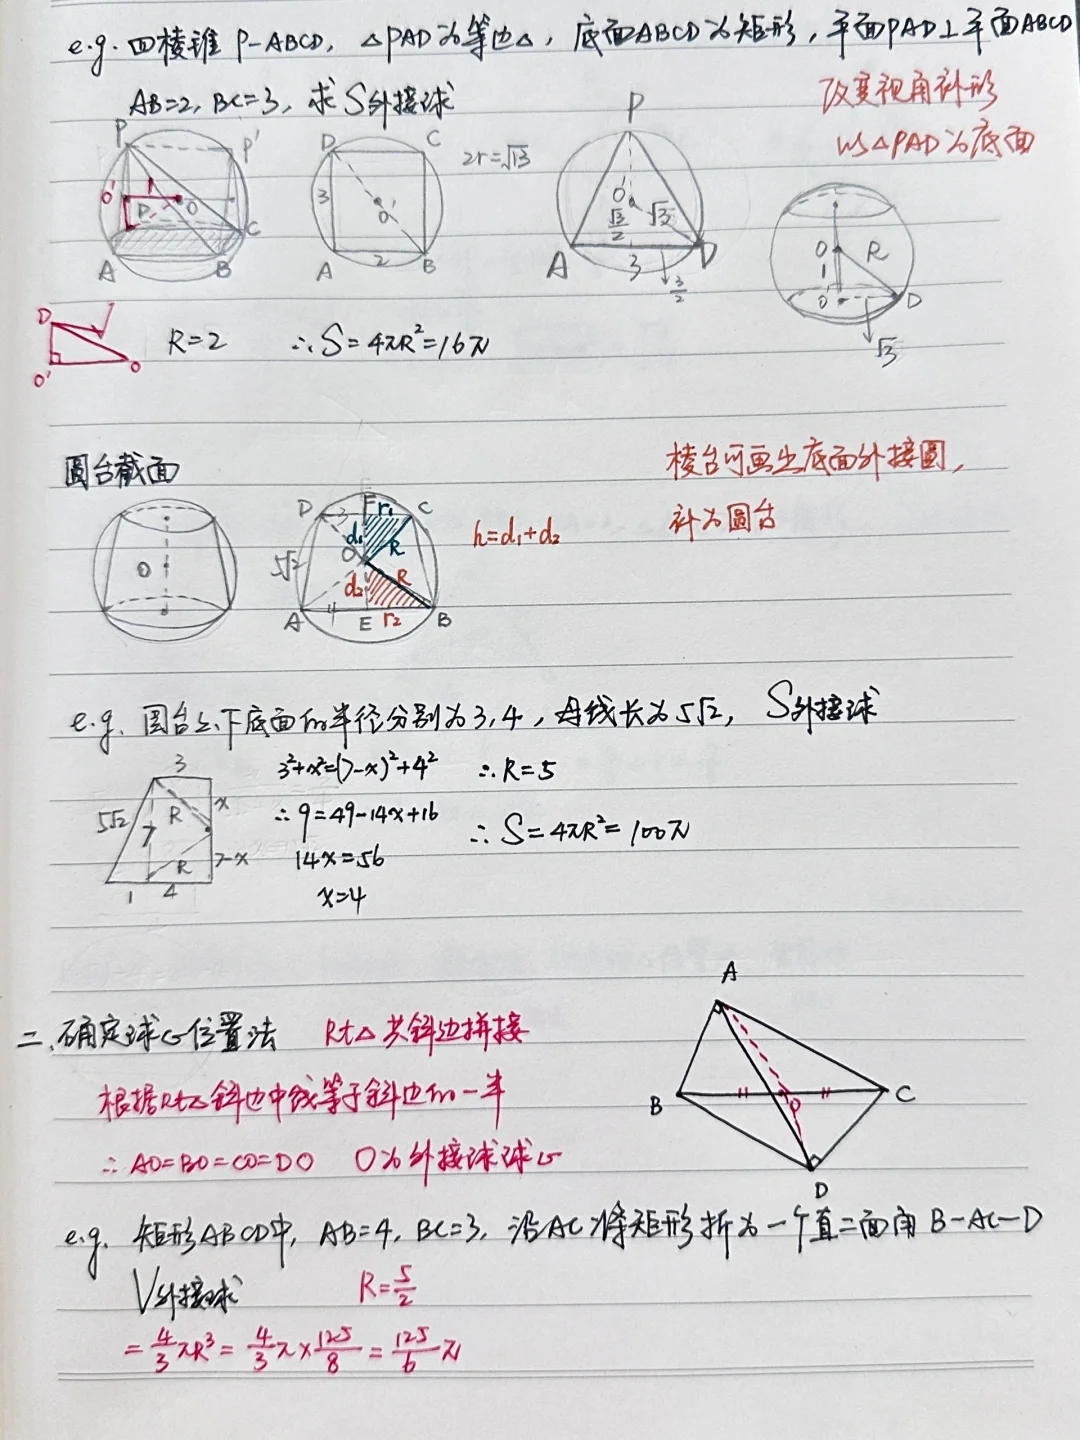 e.g. 四棱锥 P-ABCD, △PAD为等边△, 底面ABCD为矩形, 平面PAD⊥平面ABCD
AB=2, BC=3, 求S外接球
改变视角补形
以△PAD为底面
P P' O' D O C A B
D C 3 O' A 2 B
2r=√13
P O' √3/2 √3 A 3 D 3/2
O R 1 O' D √3
D O' O
R=2 ∴S=4πR²=16π
圆台截面
棱台可画出底面外接圆,
补为圆台
O
D 3 F r₁ C d₁ R O 5√2 d₂ R A 4 E r₂ B
h=d₁+d₂
e.g. 圆台上下底面的半径分别为3,4, 母线长为5√2, S外接球
3 5√2 7 R x R 7-x 1 4
3²+x²=(7-x)²+4² ∴R=5
∴9=49-14x+16
∴S=4πR²=100π
14x=56
x=4
二. 确定球心位置法 Rt△共斜边拼接
根据Rt△斜边中线等于斜边的一半
∴AO=BO=CO=DO O为外接球球心
A B O C D
e.g. 矩形ABCD中, AB=4, BC=3, 沿AC将矩形折为一个直二面角B-AC-D
V外接球 R=5/2
=4/3πR³=4/3π×125/8=125/6π